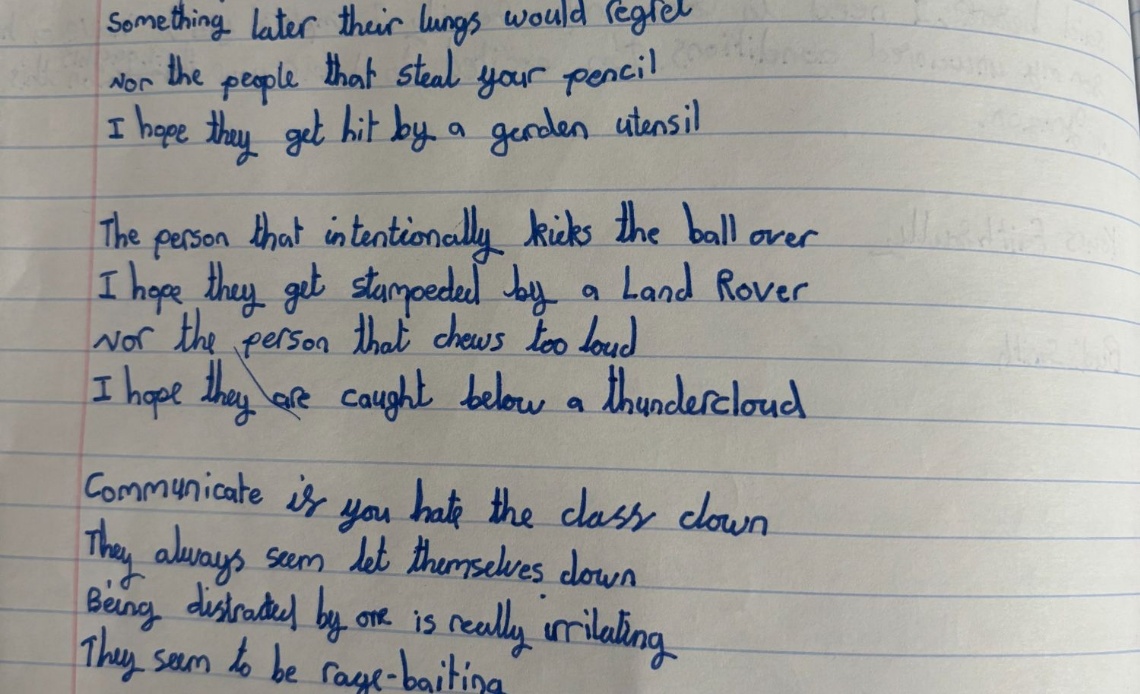 Something later their lungs would regret
Nor the people that steal your pencil
I hope they get hit by a garden utensil
The person that intentionally kicks the ball over
I hope they get stampeded by a Land Rover
Nor the person that chews too loud
I hope they are caught below a thundercloud
Communicate if you hate the class clown
They always seem let themselves down
Being distracted by one is really irritating
They seem to be rage-baiting